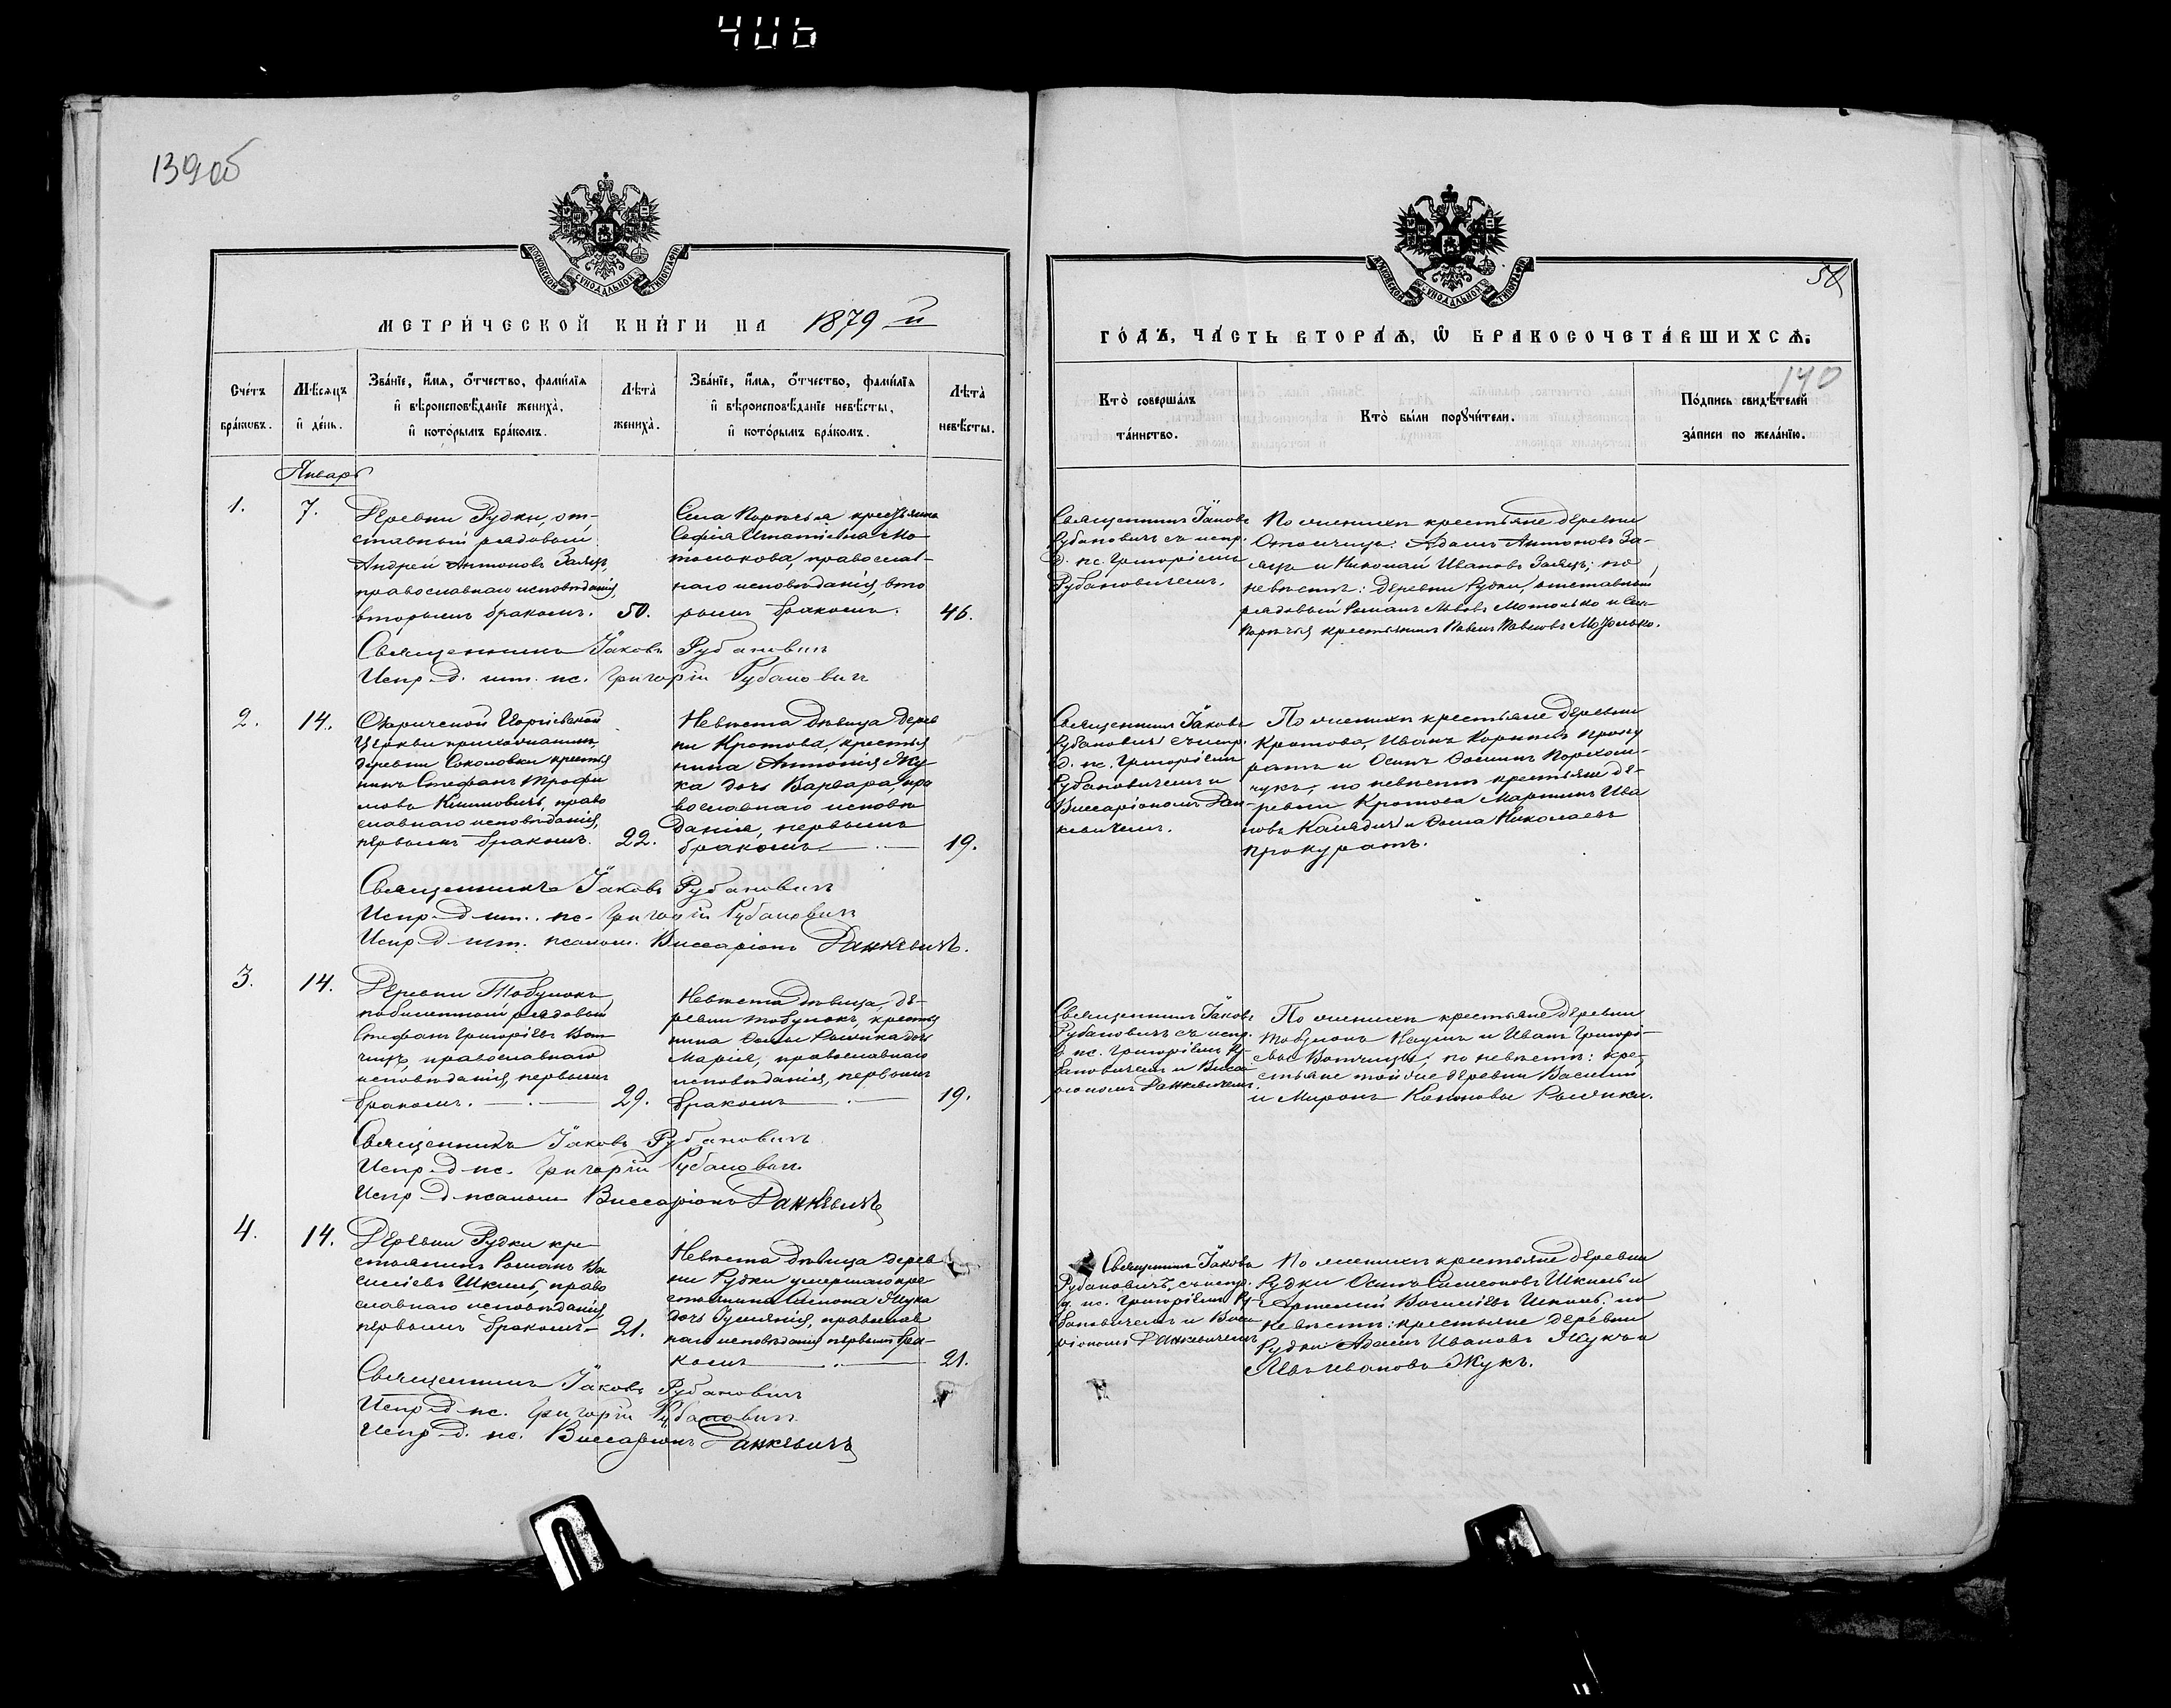 406
139об
ДУХОВСКОЙ СѴНОДАЛЬНОЙ ТИПОГРАФІИ
МЕТРИ́ЧЕСКОЙ КНИ́ГИ НА 1879 й
Сче́тъ бра́кѡвъ.
Мѣ́сѧцъ и҆ де́нь.
Зва́нїе, и҆́мѧ, ѻ҆́тчество, фами́лїѧ и҆ вѣроисповѣ́данїе жениха̀, и҆ кото́рымъ бра́комъ.
Лѣта̀ жениха̀.
Зва́нїе, и҆́мѧ, ѻ҆́тчество, фами́лїѧ и҆ вѣроисповѣ́данїе невѣ́сты, и҆ кото́рымъ бра́комъ.
Лѣта̀ невѣ́сты.
Январь
1.
7.
Деревни Рудки, от-
ставный рядовый
Андрей Антоновъ Заяцъ,
православнаго исповѣданія,
вторымъ бракомъ.
50.
Села Порѣчья крестьянка
Софія Игнатіева Мо
толькова, православ-
наго исповѣданія, вто
рымъ бракомъ.
46.
Священникъ Іаковъ Рубановичъ
Испр. д. шт. пс. Григорій Рубановичъ
2.
14.
Церкви прихожанинъ,
деревни Соколовки крестья
нинъ Стефанъ Трофи
мовъ православнаго исповѣданія,
первымъ бракомъ.
22.
Невѣста дѣвица дерев
ни Кротова, крестья
нина Антонія Жу-
ка дочь Варвара, пра
вославнаго исповѣ
данія, первымъ
бракомъ
19.
Священникъ Іаковъ Рубановичъ
Испр. д. шт. пс. Григорій Рубановичъ
Испр. д. шт. псалом. Виссаріонъ Данкевичъ.
3.
14.
Деревни
рядовый
Стефанъ Григорьевъ Вот
чицъ, православнаго
исповѣданія, первымъ
бракомъ.
29.
Невѣста дѣвица, де-
ревни крестья
нина Ѳомы дочь
Марія, православнаго
исповѣданія, первымъ
бракомъ
19.
Священникъ Іаковъ Рубановичъ
Испр. д. пс. Григорій Рубановичъ
Испр. д. псалом. Виссаріонъ Данкевичъ
4.
14.
Деревни Рудки кре
стьянинъ Романъ Ва
силіевъ Шкиль, право
славнаго исповѣданія,
первымъ бракомъ
21.
Невѣста дѣвица дерев
ни Рудки умершаго кре
стьянина Симона Жука
дочь православ
наго исповѣданія первымъ бра-
комъ
21.
Священникъ Іаковъ Рубановичъ
Испр. д. пс. Григорій Рубановичъ
Испр. д. пс. Виссаріонъ Данкевичъ
58
ГО́ДЪ, ЧА́СТЬ ВТОРА́Ѧ, Ѽ БРАКОСОЧЕТА́ВШИХСѦ.
140
Кто̀ соверша́лъ та́инство.
Кто̀ бы́ли порꙋчи́тели.
По́дпись свидѣ́телей за́писи по жела́нїю.
Священникъ Іаковъ
Рубановичъ съ испр.
д. пс. Григоріемъ
Рубановичемъ.
По женихѣ крестьяне деревни
Адамъ Антоновъ За-
яцъ и Николай Ивановъ Заяцъ; по
невѣстѣ: деревни Рудки, отставный
рядовый Романъ Львовъ Мотолько и села
Порѣчья крестьянинъ Павелъ Павловъ Мотолько.
Священникъ Іаковъ
Рубановичъ съ испр.
д. пс. Григоріемъ
Рубановичемъ и
Виссаріономъ Дан-
кевичемъ.
По женихѣ крестьяне деревни
Кротова, Иванъ Проку
ратъ и Осипъ Ѳоминъ
по невѣстѣ крестьяне де-
ревни Кротова Мартинъ Ива
новъ и Ѳома Николаевъ
Прокуратъ.
Священникъ Іаковъ
Рубановичъ съ испр.
д. пс. Григоріемъ Ру-
бановичемъ и Висса
ріономъ Данкевичемъ.
По женихѣ крестьяне деревни
Наумъ и Иванъ Григорі-
евы по невѣстѣ: кре-
стьяне той же деревни Василій
и Миронъ
Священникъ Іаковъ
Рубановичъ, съ испр.
д. пс. Григоріемъ Ру-
бановичемъ и Висса
ріономъ Данкевичемъ
По женихѣ крестьяне деревни
Рудки Осипъ Симеоновъ Шкиль и
Василіевъ Шкиль; по
невѣстѣ: крестьяне деревни
Рудки Адамъ Ивановъ Жукъ и
Левъ Ивановъ Жукъ.